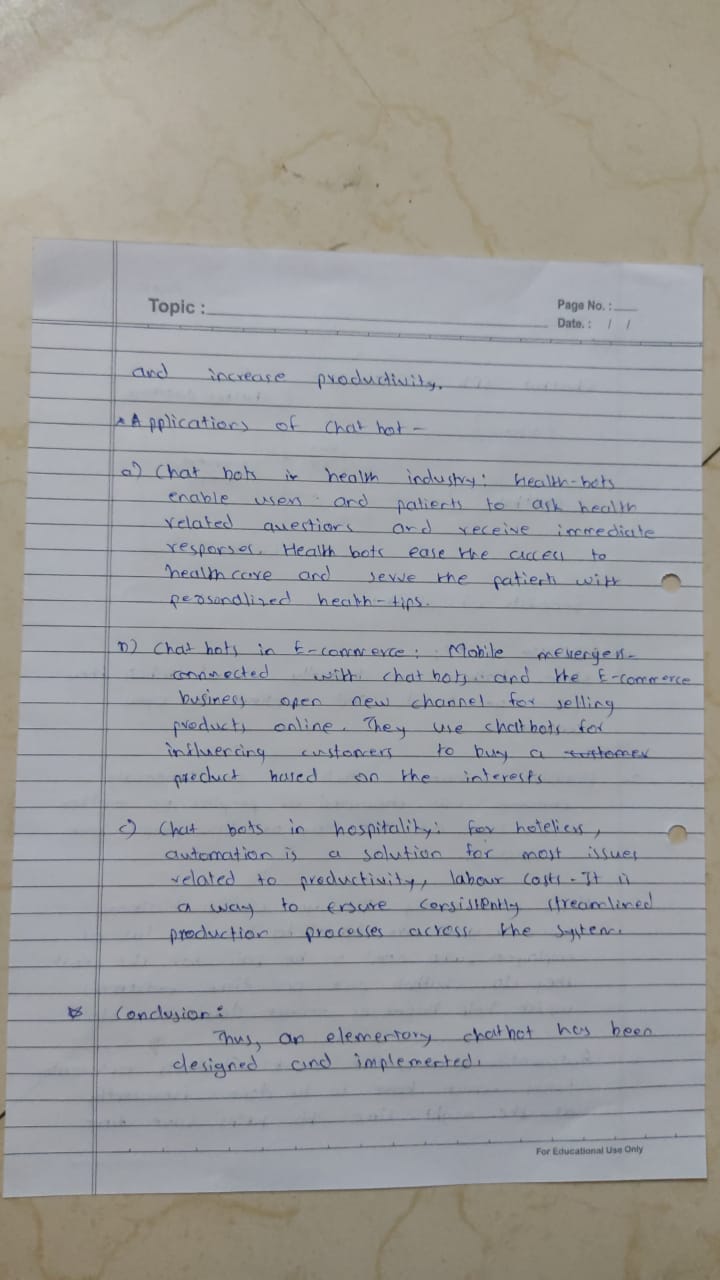 Topic :
Page No. :
Date. : / /
and increase productivity.
* Applications of Chat bot -
a) Chat bots in health industry: health-bots
enable users and patients to ask health
related questions and receive immediate
responses. Health bots ease the access to
health care and serve the patients with
personalized health-tips.
b) Chat bots in E-commerce: Mobile messengers
connected with chat bots and the E-commerce
business open new channel for selling
products online. They use chatbots for
influencing customers to buy a customer
product based on the interests
c) Chat bots in hospitality: for hoteliers,
automation is a solution for most issues
related to productivity, labour costs. It is
a way to ensure consistently streamlined
production processes across the system.
Conclusion:
Thus, an elementory chatbot has been
designed and implemented.
For Educational Use Only